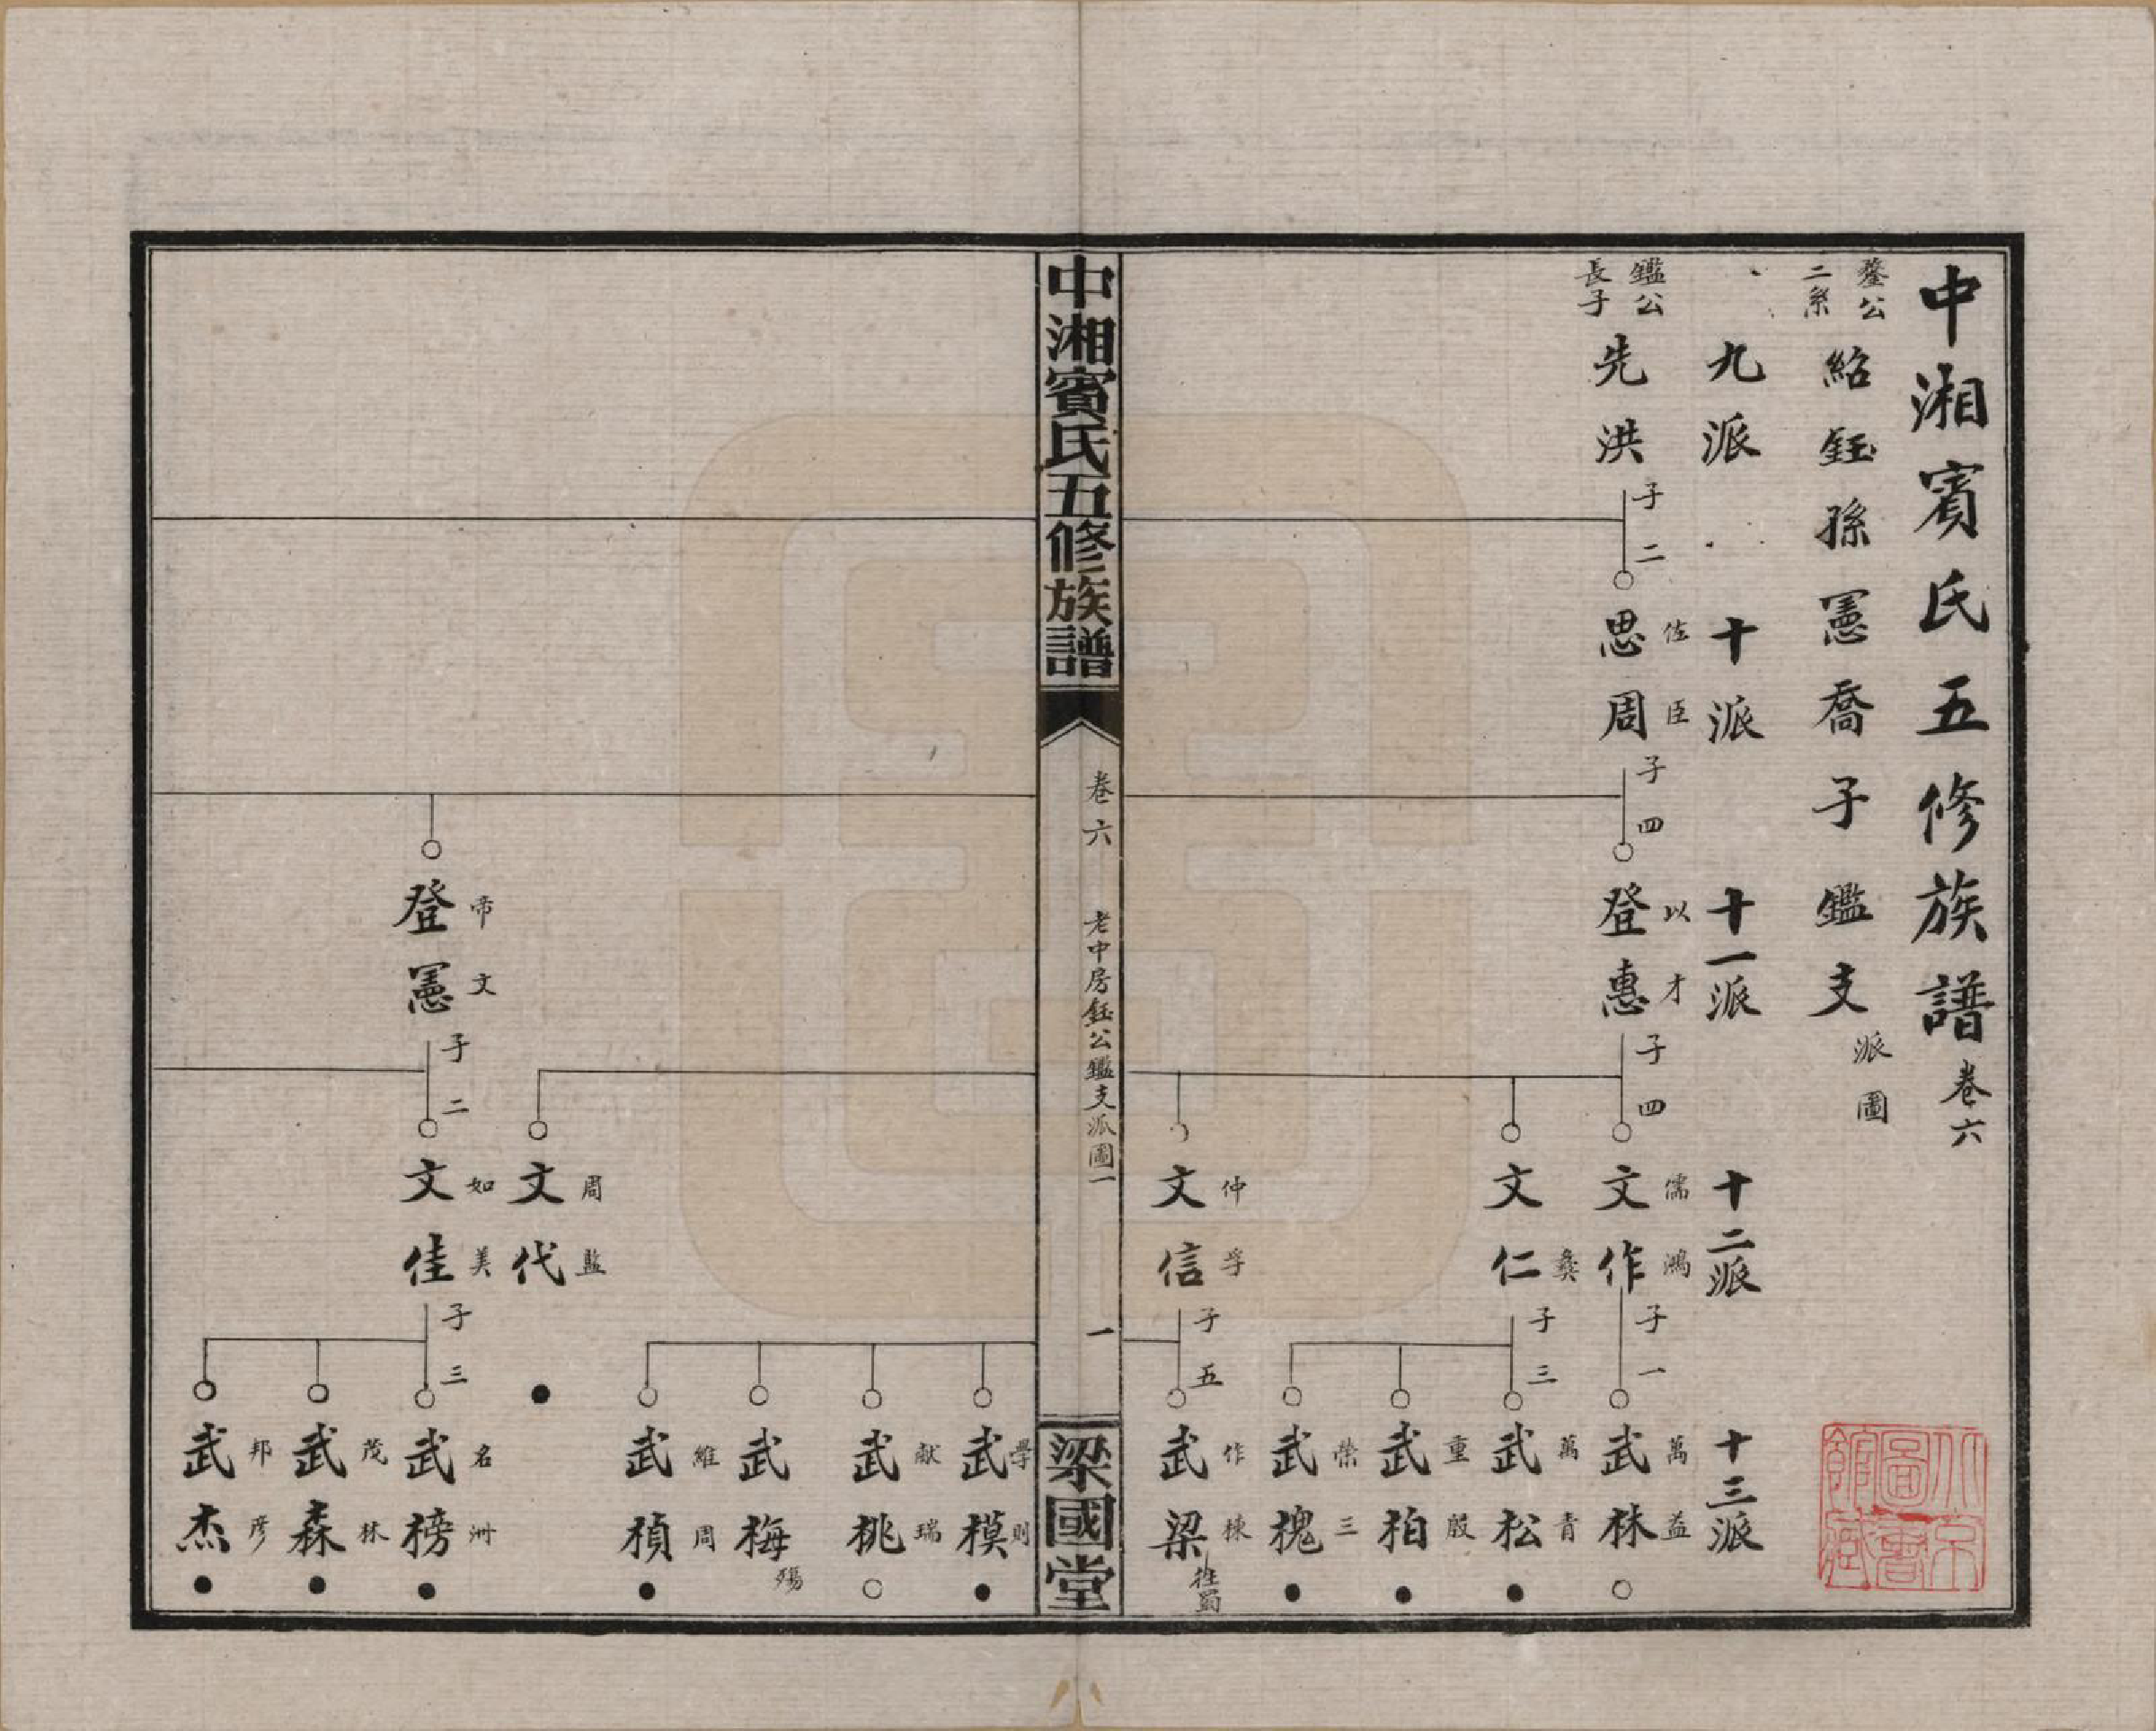 中湘賓氏五修族譜卷六
鏊公二系 紹鈺孫憲喬子鑑支派圖
九派 十派 十一派 十二派 十三派
鑑公長子 先洪 子二 思周 佐臣 子四 登惠 以才 子四 文作 儒鴻 子一 武林 萬益
文仁 彝 子三 武松 萬青
武柏 重殷
武槐 榮三
文信 仲孚 子五 武梁 作棟 往蜀
中湘賓氏五修族譜 卷六 老中房鈺公鑑支派圖一 一 梁國堂
武模 學則
武桃 献瑞
武梅 殤
武楨 維周
文代 周監
登憲 帝文 子二 文佳 如美 子三 武榜 名洲
武森 茂林
武杰 邦彦
北京圖書館藏